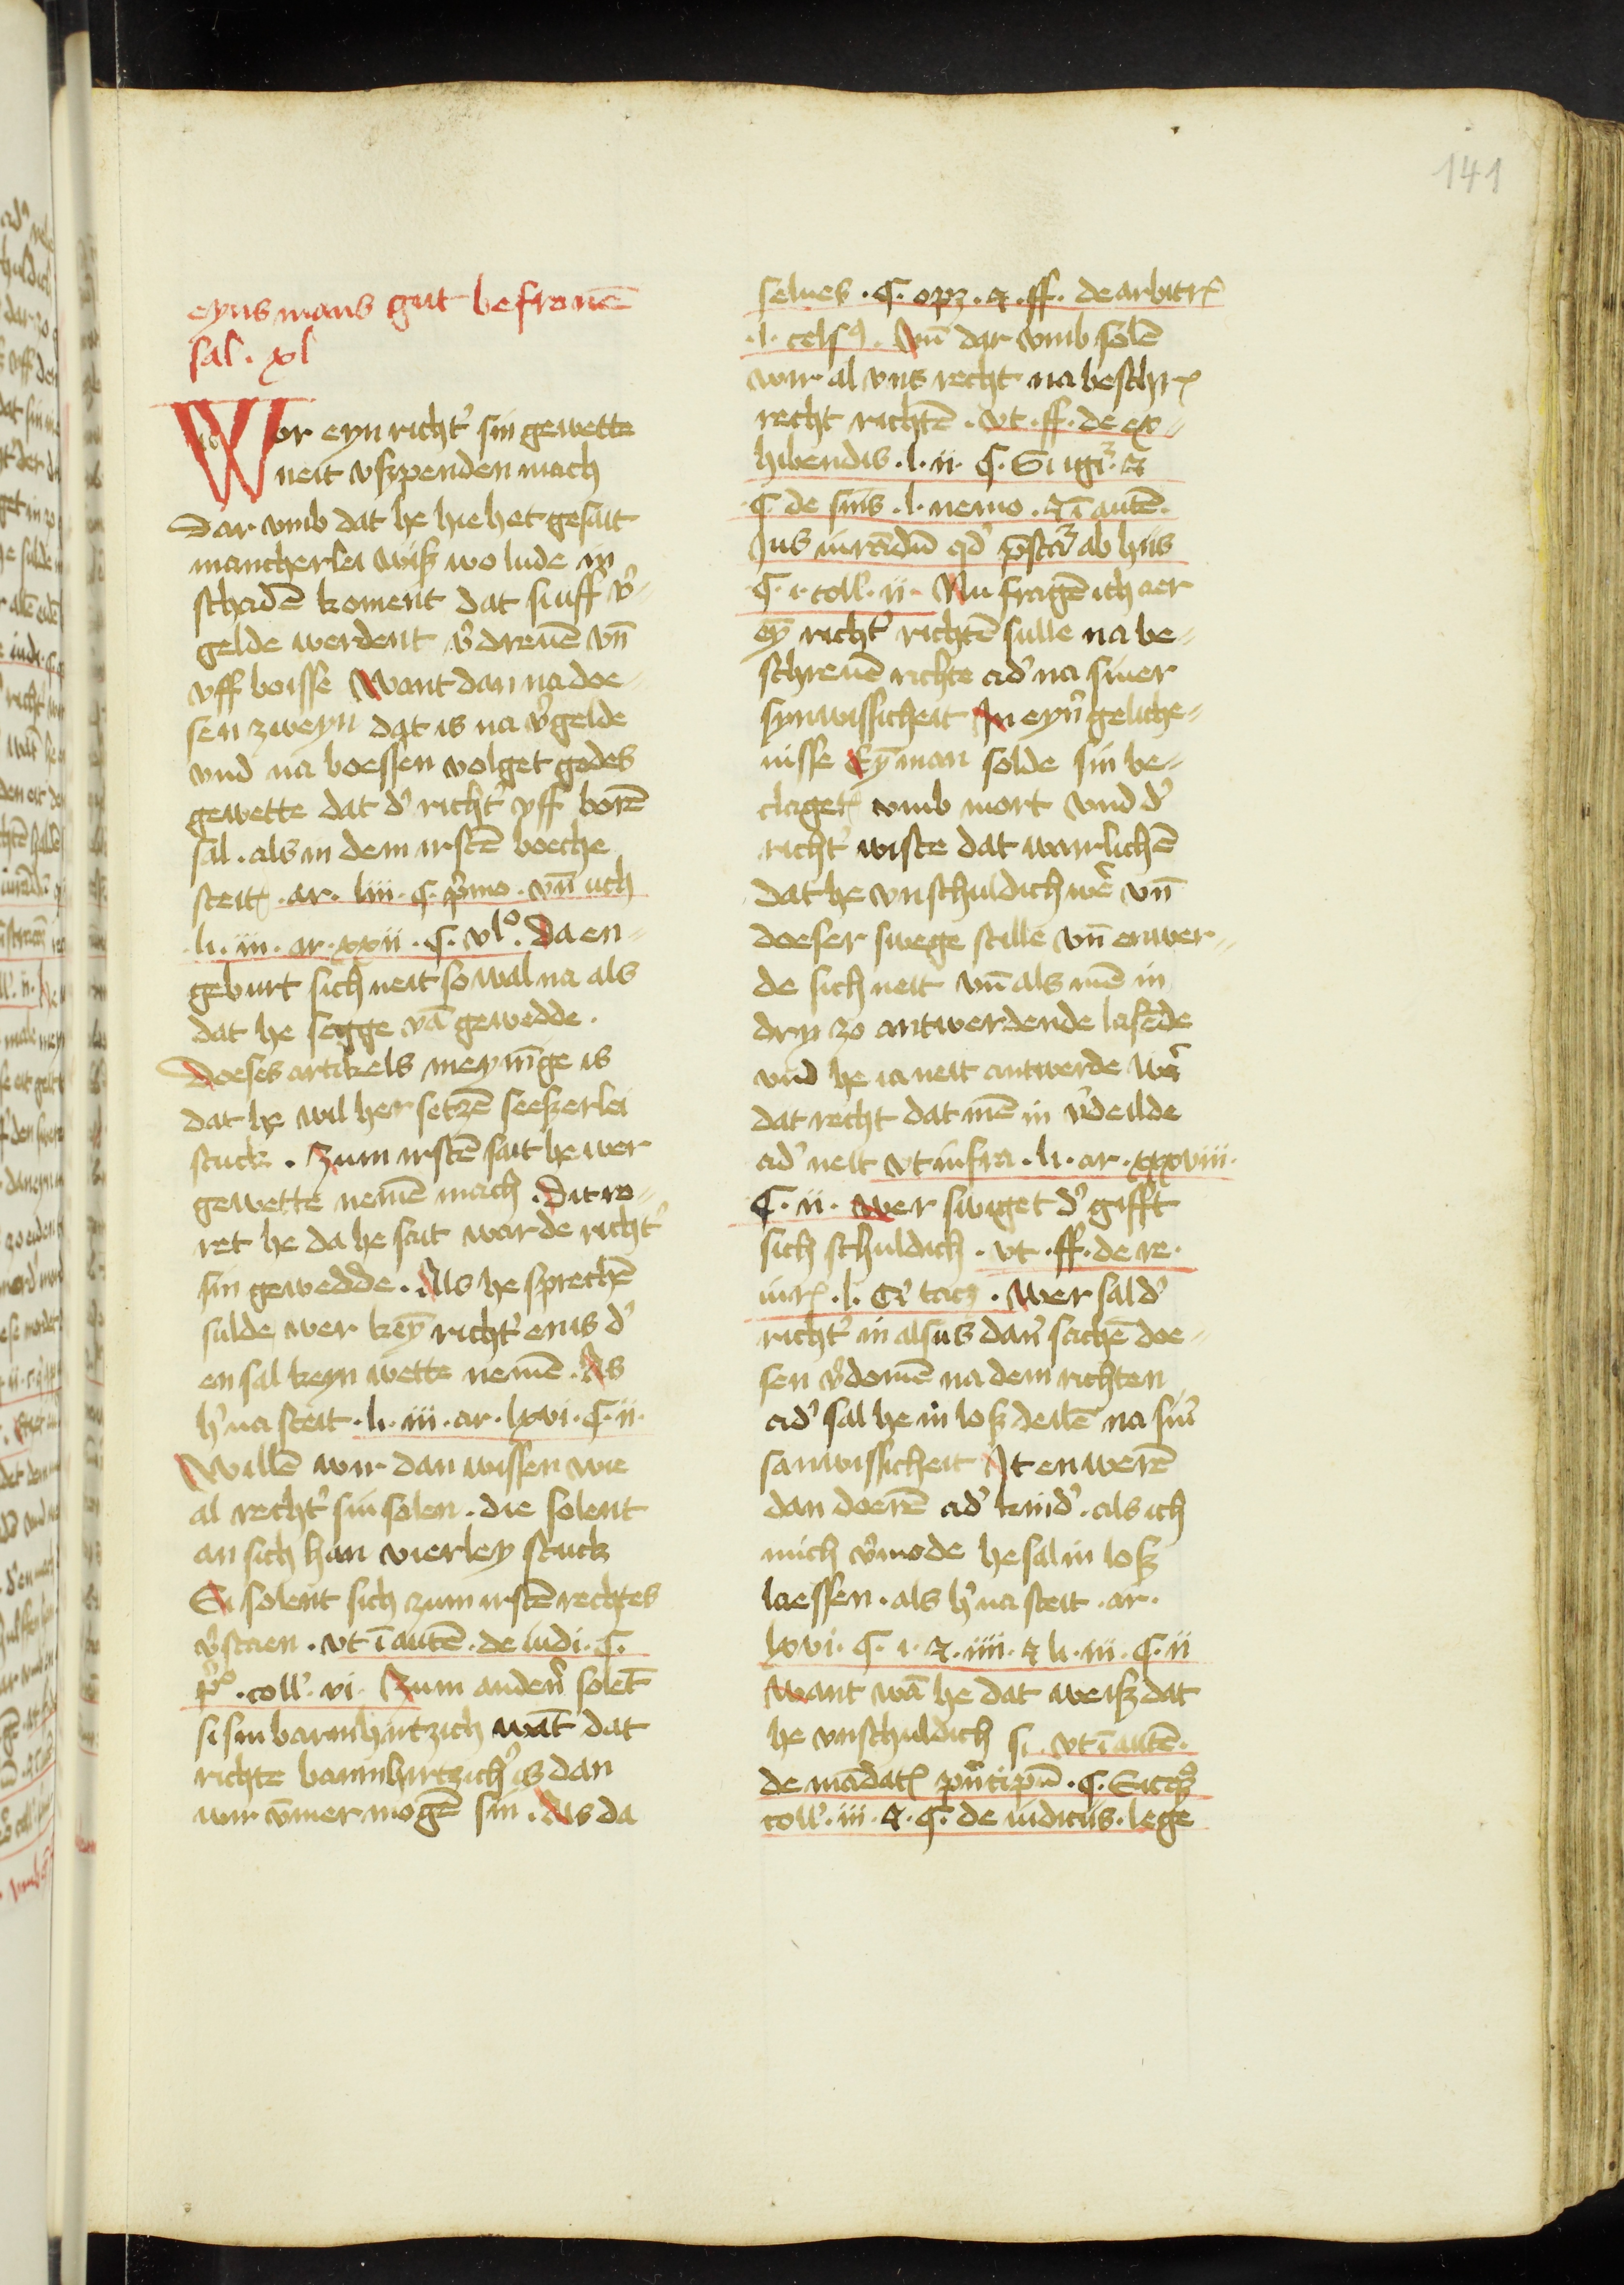 141
eyns mans gut befronē
sal . xl
Wor eyn richt' sin gewette
neit vßpenden mach
Dar vmb dat he hie het gesait
mancherlei wiß wo lude in
schadē koment dat si uff v'-
gelde werdent v'dreuē vn̄
vff boisse Want dan na doe-
sen zweyn dat is na v'gelde
vnd na boessen volget godes
gewette dat d' richt' vff borē
sal . als in dem irstē boeche
steit . ar . liii . ₵ . p'mo . vn̄ uch
.li . iii . ar . xxii . ₵ . vlº . Da en-
geburt sich neit so wal na als
dat he segge vā gewedde .
Doeses artikels meynīge is
dat he wil her setzē seeßerlei
stuck . Zum irstē sait he wer
gewette nemē mach . dit ro-
ret he da he sait war de richt'
sin gewedde . Als he sprechē
sulde wer keȳ richt' en is d'
en sal keyn wette nemē . As
h' na steit . li . iii . ar . lxvi . ₵ . ii .
Willē wir dan wissen wie
al recht' sin solen . die solent
an sich han vierley stuck
Si solent sich zum irstē rechtes
v'staen . vt ī autē . de iudi . ₵ .
p'º . coll' . vi . Zum anden' solēt
si sin barmhirtzich wāt dat
richte barmhirtzich' is dan
wir v̄mer mogē sin . Als da
selues . ₵ . opz . ⁊ . ff . de arbitr̄
.l . cels9 . Vn̄ dar vmb solē
wir al vns recht na beschr̄
recht richtē . vt . ff . de ex-
hibendis . l . ii . ₵ . Si igr' . ⁊
₵ de sn̄is . l . nemo . ⁊ ī autē .
Jus iurādū qd' p̄star' ab hiis
₵ . i . coll' . ii . Nu fragē ich aer
eȳ richt' richtē sulle na be-
schreuē richte ad' na siner
synwissicheit In eyn' geliche-
nisse Eȳ man solde sin be-
claget vmb mort vnd d'
richt' wiste dat wairlichē
dat he vnschuldich wē' vn̄
doeser swege stille vn̄ enwer-
de sich neit vn̄ als mē in
dryn zo antwerdende lasēde
vnd he ia neit antwerde wē'
dat recht dat mē in v'deilde
ad' neit vt infra . li . ar . xxxviii .
₵ . ii . Wer swiget d' gifft
sich schuldich . vt . ff . de re .
iur̄ . l . Q' tac3 . Wer sal d'
richt' in alsus dan' sachē doe-
sen v'domē na dem richten
ad' sal he in loß deilē na sin'
sanwissicheit It en werē
dan doerē ad' kind' . als ich
mich v'mode he sal in loß
laessen . als h' na steit . ar .
lxvi . ₵ . i . ⁊ . iiii . ⁊ li . iii . ₵ . ii
Want wā he dat weiß dat
he vnschuldich si . vt ī autē .
de mādat' p'ncipū . ₵ .
coll' . iii . ⁊ . ₵ . de iudiciis . lege